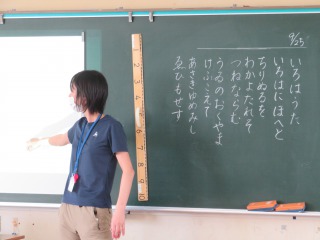 9/25
いろはうた
いろはにほへと
ちりぬるを
わかよたれそ
つねならむ
うゐのおくやま
けふこえて
あさきゆめみし
ゑひもせす
1
2
3
4
5
6
7
8
9
10